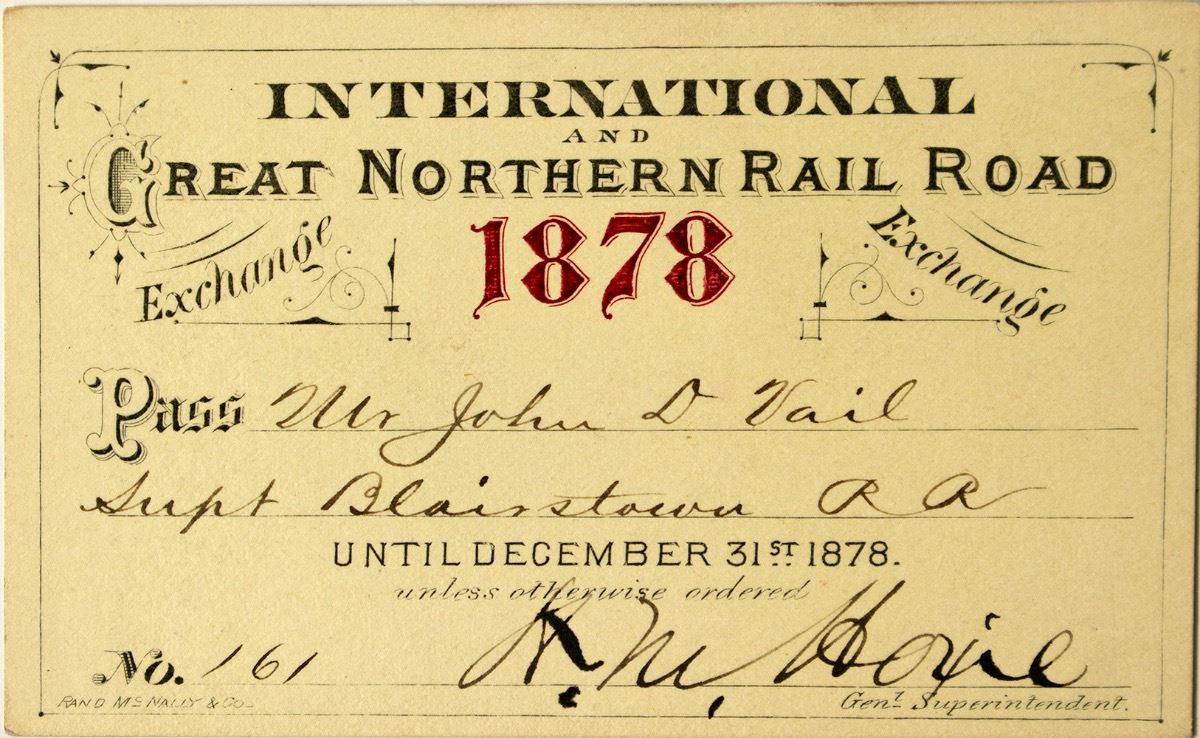 INTERNATIONAL
AND
GREAT NORTHERN RAIL ROAD
Exchange 1878 Exchange
Pass Mr John D Vail
Supt Blairstown R R
UNTIL DECEMBER 31ST 1878.
unless otherwise ordered
No. 161 H. M. Hoxie
RAND McNALLY & Co. Genl. Superintendent.